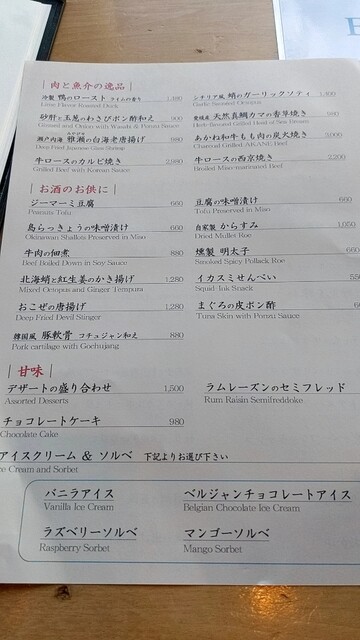 | 肉と魚介の逸品 |
冷製 鴨のロースト ライムの香り
Lime Flavor Roasted Duck
シチリア風 蛸のガーリックソティ
Garlic Sauteed Octopus
砂肝と玉葱のわさびポン酢和え 900
Gizzard and Onion with Wasabi & Ponzu Sauce
愛媛産 天然真鯛カマの香草焼き
Herb-flavored Grilled Head of Sea Bream
瀬戸内海 雅瀬の白海老唐揚げ 880
Deep Fried Japanese Glass Shrimp
あかね和牛もも肉の炭火焼き 3,000
Charcoal Grilled AKANE Beef
牛ロースのカルビ焼き 2,980
Grilled Beef with Korean Sauce
牛ロースの西京焼き 2,200
Broiled Miso-marinated Beef
| お酒のお供に |
ジーマーミ豆腐 660
Peanuts Tofu
豆腐の味噌漬け 660
Tofu Preserved in Miso
島らっきょうの味噌漬け 660
Okinawan Shallots Preserved in Miso
自家製 からすみ 1,050
Dried Mullet Roe
牛肉の佃煮 880
Beef Boiled Down in Soy Sauce
燻製 明太子 660
Smoked Spicy Pollack Roe
北海蛸と紅生姜のかき揚げ 1,280
Mixed Octopus and Ginger Tempura
イカスミせんべい 55
Squid Ink Snack
おこぜの唐揚げ 1,280
Deep Fried Devil Stinger
まぐろの皮ポン酢 66
Tuna Skin with Ponzu Sauce
韓国風 豚軟骨 コチュジャン和え 880
Pork cartilage with Gochujang
| 甘味 |
デザートの盛り合わせ 1,500
Assorted Desserts
ラムレーズンのセミフレッド
Rum Raisin Semifreddoke
チョコレートケーキ 980
Chocolate Cake
アイスクリーム & ソルベ 下記よりお選び下さい
ce Cream and Sorbet
バニラアイス
Vanilla Ice Cream
ベルジャンチョコレートアイス
Belgian Chocolate Ice Cream
ラズベリーソルベ
Raspberry Sorbet
マンゴーソルベ
Mango Sorbet